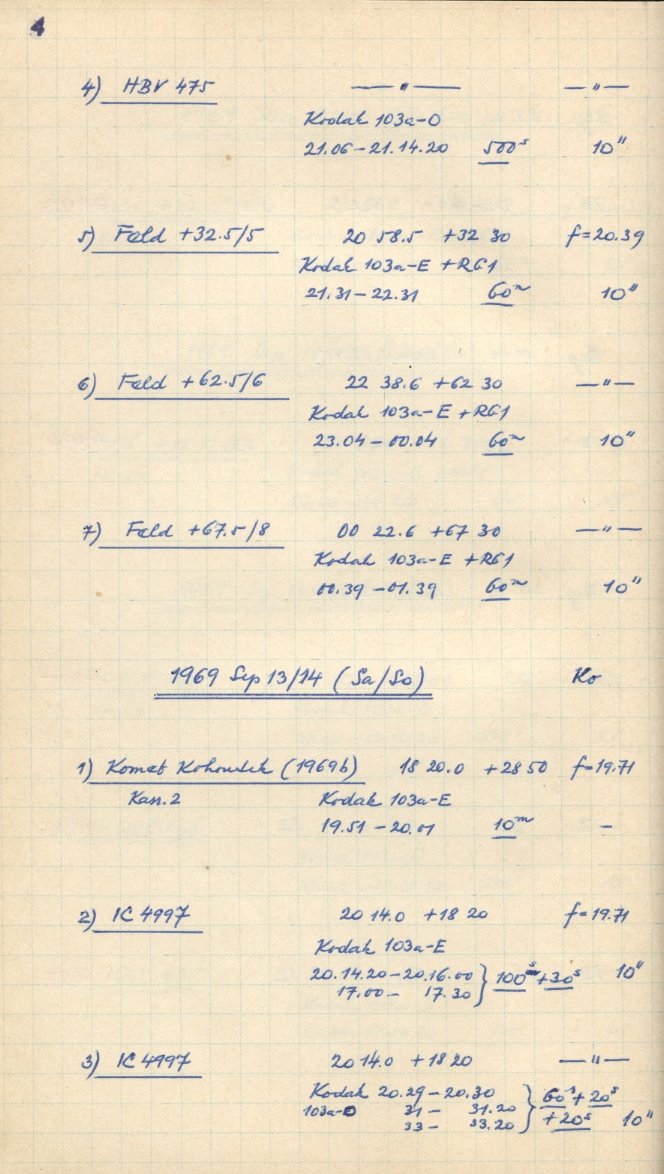 4
4) HBV 475 —"— —"—
Kodak 103a-O
21.06-21.14.20 500s 10"
5) Feld +32.5/5 20 58.5 +32 30 f=20.39
Kodak 103a-E +RG1
21.31-22.31 60m 10"
6) Feld +62.5/6 22 38.6 +62 30 —"—
Kodak 103a-E +RG1
23.04-00.04 60m 10"
7) Feld +67.5/8 00 22.6 +67 30 —"—
Kodak 103a-E +RG1
00.39-01.39 60m 10"
1969 Sep 13/14 (Sa/So) Ko
1) Komet Kohoutek (1969b) 18 20.0 +28 50 f=19.71
Kas.2 Kodak 103a-E
19.51-20.01 10m -
2) IC 4997 20 14.0 +18 20 f=19.71
Kodak 103a-E
20.14.20-20.16.00 } 100s+30s 10"
17.00- 17.30
3) IC 4997 20 14.0 +18 20 —"—
Kodak 20.29-20.30 } 60s+20s
103a-O 31- 31.20 +20s 10"
33- 33.20